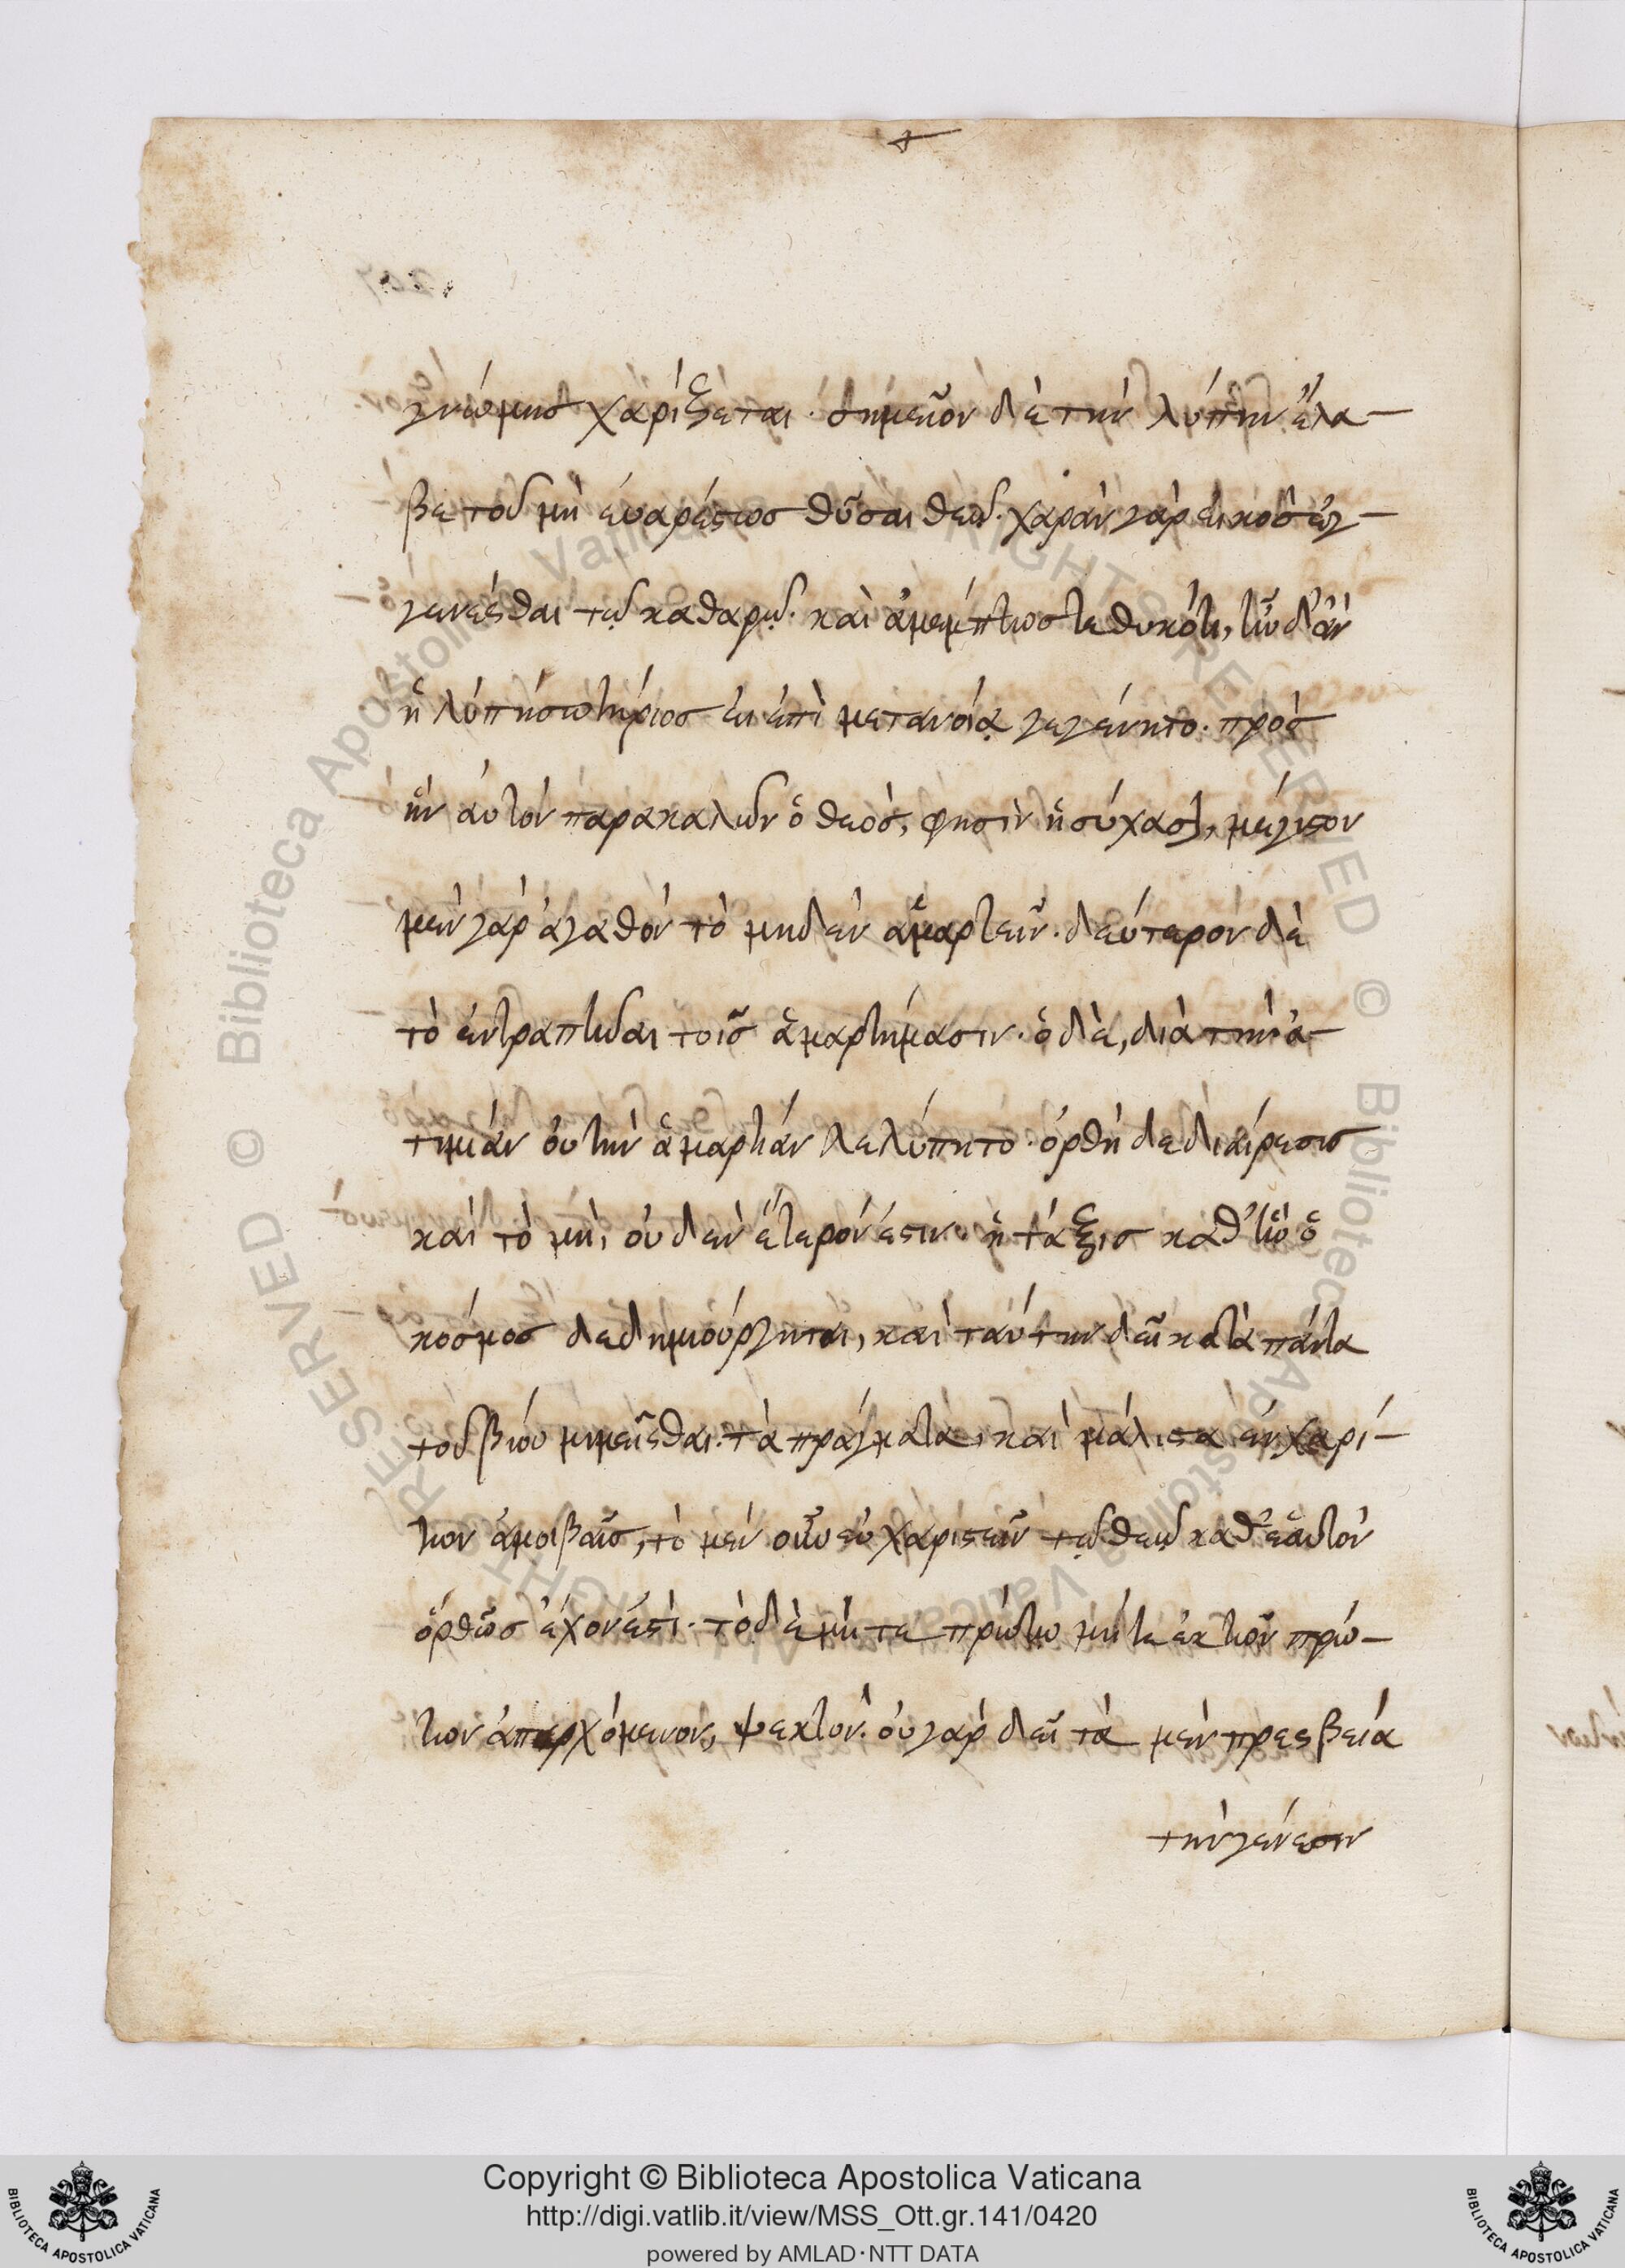 γνώμης χαρίζεται· σημεῖον δὲ τὴν λύπην ἔλα-
βε τοῦ μὴ εὐαρέστως θῦσαι θεῷ. χαρὰν γὰρ εἰκὸς ἐγ-
γενέσθαι τῷ καθαρῷ. καὶ ἀμέμπτως τεθυκότι, τῷ δ' ἂν
ἡ λύπη σωτήριος εἰ ἐπὶ μετανοίᾳ γεγένητο. πρὸς
ἣν αὐτὸν παρακαλῶν ὁ θεός, φησὶν ἡσύχασον, μέγιστον
μὲν γὰρ ἀγαθὸν τὸ μηδὲν ἁμαρτεῖν. δεύτερον δὲ
τὸ ἐντραπῆναι τοῖς ἁμαρτήμασιν. ὁ δὲ, διὰ τὴν ἀ-
τιμίαν οὐ τὴν ἁμαρτίαν λελύπητο. ὀρθὴ δὲ διαίρεσις
καὶ τὸ μὴ, οὐδὲν ἕτερόν ἐστιν. ἡ τάξις καθ' ἣν ὁ
κόσμος δεδημιούργηται, καὶ ταύτην δεῖ κατὰ πάντα
τοῦ βίου μιμεῖσθαι. τὰ πράγματα, καὶ μάλιστα ἐν χαρί-
των ἀμοιβαῖς, τὸ μὲν οὖν εὐχαριστεῖν τῷ θεῷ καθ' ἑαυτὸν
ὀρθῶς ἔχον ἐστὶ. τὸ δὲ μήτε πρώτῳ μήτε ἐκ τῶν πρώ-
των ἀπαρχόμενον, ψεκτὸν. οὐ γὰρ δεῖ τὰ μὲν πρεσβεῖα
τὴν γένεσιν
Copyright © Biblioteca Apostolica Vaticana
http://digi.vatlib.it/view/MSS_Ott.gr.141/0420
powered by AMLAD·NTT DATA
BIBLIOTECA APOSTOLICA VATICANA
BIBLIOTECA APOSTOLICA VATICANA
© Biblioteca Apostolica Vaticana ALL RIGHTS RESERVED
© Biblioteca Apostolica Vaticana ALL RIGHTS RESERVED